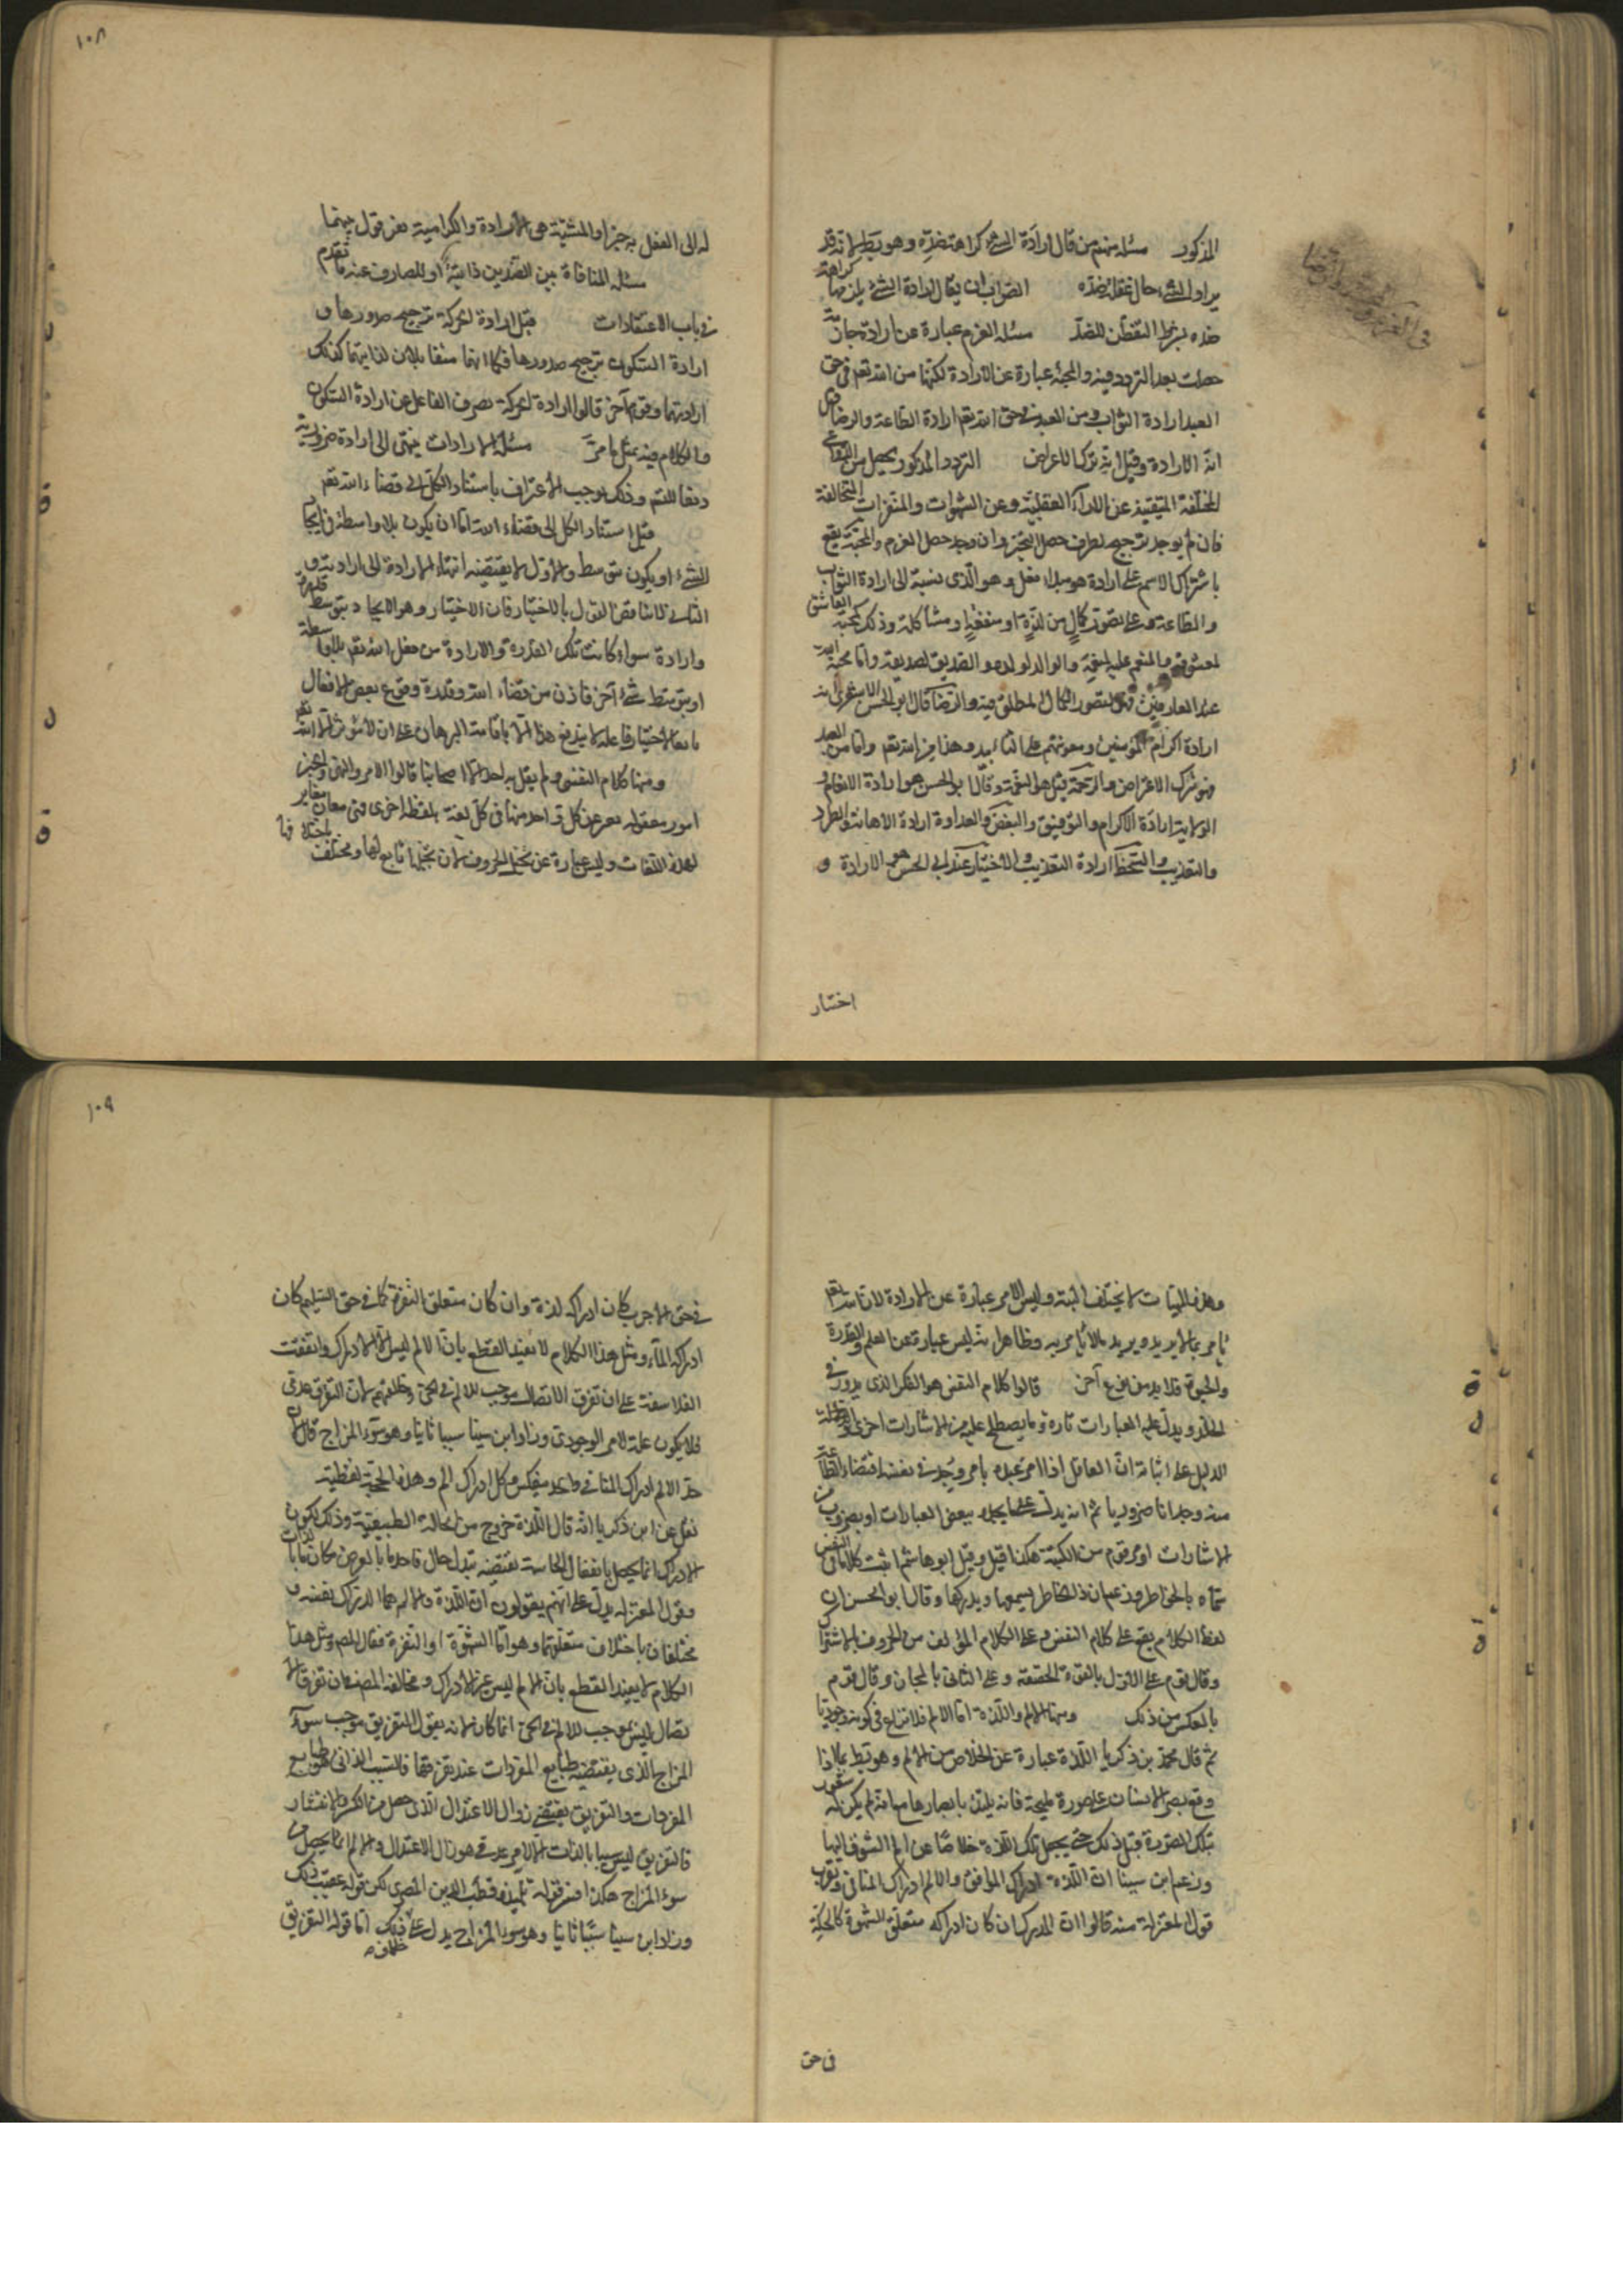 المذكور مسئله منهم من قال ارادة الشئ كراهة ضده وهو بط لانه قد
يراد الشئ حال غفلة ضده الصواب ان يقال ارادة الشئ يلزمها كراهة
ضده بشرط التفطن للضد مسئله العزم عبارة عن ارادة جازمة
حصلت بعد التردد فيه والمحبة عبارة عن الارادة لكنها من الله تعم في حق
العبد ارادة الثواب ومن العبد في حق الله تعم ارادة الطاعة والرضا قيل
انه الارادة وقيل انه ترك الاعراض التردد المذكور يحصل من الدواعي
المختلفة المنبعثة عن الاراء العقلية وعن الشهوات والمنفرات المتخالفة
فان لم يوجد ترجيح لطرف حصل التحير وان وجد حصل العزم والمحبة يقع
باشتراك الاسم على ارادة هو مبدا فعل وهو الذي نسبة الى ارادة الثواب
والطاعة وعلى تصور كمال من لذة او منفعة او مشاكلة وذلك كمحبة العاشق
لمعشوقه والمنعم عليه لمنعمه والوالد لولده والصديق لصديقه واما محبة الله
عند العارفين فهى لتصور الكمال المطلق فيه والرضا قال ابو الحسن الاشعري انه
ارادة اكرام المؤمنين ومعونتهم على التأبيد وهذا من الله تعم واما من العبد
فهو ترك الاعراض والرحمة قيل هو النعمة وقال ابو الحسن هو ارادة الانعام و
الولاية ارادة الاكرام والتوفيق والبغض والعداوة ارادة الاهانة والطرد
والتعذيب والسخط ارادة التعذيب والاختيار عند ابي الحسن هو الارادة و
اختار
١٠٨
له الى الفعل به خير او المشيئة هى الارادة والكرامية يفرقون بينهما
مسئله المنافاة بين الضدين ذاتية او للصارف عنه ما تقدم
في باب الاعتقادات قيل ارادة الحركة ترجيح صدورها و
ارادة السكون ترجيح صدورها فكما انهما متقابلان لذاتيهما كذلك
ارادتهما وقوم آخر قالوا ارادة الحركة يصرف الفاعل عن ارادة السكون
والكلام فيه بمثل ما مر مسئله الارادات ينتهى الى ارادة ضرورية
دفعا للتسـ وذلك يوجب الاعتراف باستناد الكل الى قضاء الله تعم
قيل استناد الكل الى قضاء الله اما ان يكون بلا واسطة في ايجاد
الشئ او يكون بتوسط والاول لا يقتضيه انتهاء الارادة الى ارادته و
الثاني لا يناقض القول بالاختيار فان الاختيار هو الايجاد بتوسط قدرة
وارادة سواء كانت تلك القدرة والارادة من فعل الله تعم بلا واسطة
او بتوسط شئ آخر فاذن من قضاء الله وقدرة وقوع بعض الافعال
تابعا لاختيار فاعله لا يندفع هذا الا باقامة البرهان على ان لا مؤثر الا الله تعم
ومنها كلام النفس ولم يقل به احد الا اصحابنا قالوا الامر والنهى والخبر
امور معقولة يعبر عن كل واحد منها في كل لغة بلفظة اخرى فهى معان مغايرة
لهذه اللغات وليس عبارة عن تخيل الحروف لان تخيلها تابع لها ومختلف باختلافها
وهذه الماهيات لا يختلف البتة وليس الامر عبارة عن الارادة لان الله تعم
يأمر بما لا يريد ويريد ما لا يأمر به وظاهر انه ليس عبارة عن العلم والقدرة
والحيوة فلا بد من نوع آخر قالوا كلام النفس هو الفكر الذي يدور في
الخلد ويدل عليه العبارات تارة وما يصطلح عليه من الاشارات اخرى
الدليل على اثباته ان العاقل اذا امر عبده بامر وجد في نفسه اقتضاء الطاعة
منه وجدانا ضروريا ثم انه يدل على ما يجده ببعض العبارات او بضروب من
الاشارات او برقوم من الكتبة هكذا قيل وقيل ابو هاشم اثبت كلاما في النفس
سماه بالخواطر وزعم ان ذلك الخاطر يسمعها ويدركها وقال ابو الحسن ان
لفظ الكلام يقع على كلام النفس وعلى الكلام المؤلف من الحروف بالاشتراك
وقال قوم على الاول بالحقيقة وعلى الثاني بالمجاز وقال قوم
بالعكس من ذلك ومنها الالم واللذة اما الالم فلا نزاع في كونه وجوديا
ثم قال محمد بن زكريا اللذة عبارة عن الخلاص من الالم وهو بط بما اذا
وقع بصر الانسان على صورة مليحة فانه يلتذ بابصارها مع انه لم يكن له شعور
بتلك الصورة قبل ذلك حتى يجعل تلك اللذة خلاصا عن الم الشوق اليها
وزعم ابن سينا ان اللذة ادراك الموافق والالم ادراك المنافي ويقرب
قول المعتزلة منه قالوا ان المدرك ان كان ادراكه متعلق الشهوة كالحكة
في حق
١٠٩
في حق الاجرب كان ادراكه لذة وان كان متعلق النفرة كما في حق السليم كان
ادراكه الماً ومثل هذا الكلام لا يفيد القطع بان الالم ليس الا الادراك واتفقت
الفلاسفة على ان تفرق الاتصال موجب للالم في الحى وخالفتهم لان التفرق عدمي
فلا يكون علة للامر الوجودي وزاد ابن سينا سببا ثانيا وهو سوء المزاج قال لان
حد الالم ادراك المنافي واحد فينعكس كل ادراك الم وهذه الحجة لفظية
نقل عن ابن زكريا انه قال اللذة خروج من الحالة الطبيعية وذلك لكون
الادراك انما يحصل بانفعال الحاسة يقتضيه تبدل حال فاخذ ما بالعرض مكان ما بالذات
وقول المعتزلة يدل على انهم يقولون ان اللذة والالم هما الادراك نفسه و
مختلفان باختلاف متعلقهما وهو اما الشهوة او النفرة فقال المص ومثل هذا
الكلام لا يفيد القطع بان الالم ليس غير الادراك ومخالفة المص فان تفرق الا
تصال ليس بموجب للالم في الحى انما كان لانه يقول التفريق موجب سوء
المزاج الذي يقتضيه طبايع المفردات عند تفرقها فالسبب الذاتي طبايع
المفردات والتفريق يقتضي زوال الاعتدال الذي حصل من الكسر والانكسار
فالتفريق ليس سببا بالذات الا لامر عدمي هو زوال الاعتدال والالم انما يحصل من
سوء المزاج هكذا فسر قوله تلميذه قطب الدين المصري لكن قوله عقيب ذلك
وزاد ابن سينا سببا ثانيا وهو سوء المزاج يدل على خلاف ذلك اما قوله التفريق